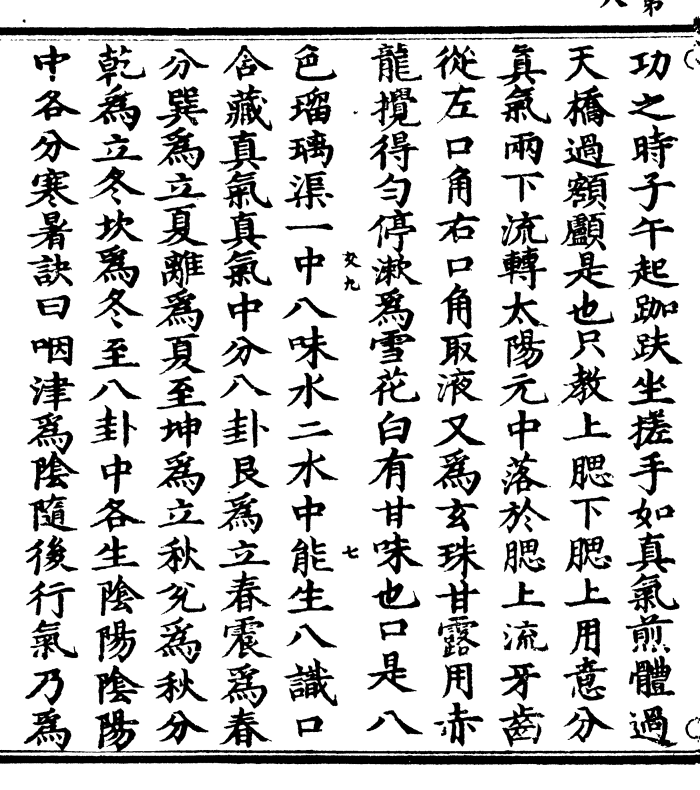 功之時子午起跏趺坐搓手如真氣煎體過
天橋過額顱是也只教上腮下腮上用意分
真氣兩下流轉太陽元中落於腮上流牙齒
從左口角右口角取液又爲玄珠甘露用赤
龍攪得勻停漱爲雪花白有甘味也口是八
交九 七
色瑠璃渠一中八味水二水中能生八識口
含藏真氣真氣中分八卦艮爲立春震爲春
分巽爲立夏離爲夏至坤爲立秋兊爲秋分
乾爲立冬坎爲冬至八卦中各生陰陽陰陽
中各分寒暑訣曰咽津爲陰隨後行氣乃爲